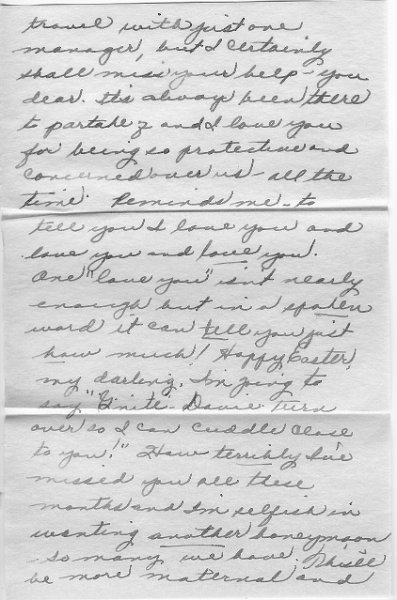 travel with just one
manager, but I certainly
shall miss your help - you
dear. It's always been there
to partake of and I love you
for being so protective and
concerned over us - all the
time. Reminds me - to
tell you I love you and
love you and love you.
One "love you" isn't nearly
enough but in a spoken
word it can tell you just
how much! Happy Easter,
my darling. I'm going to
say "G'nite - Davie turn
over so I can cuddle close
to you!" How terribly I've
missed you all these
months and I'm selfish in
wanting another honeymoon
- so many we have; this'll
be more maternal and